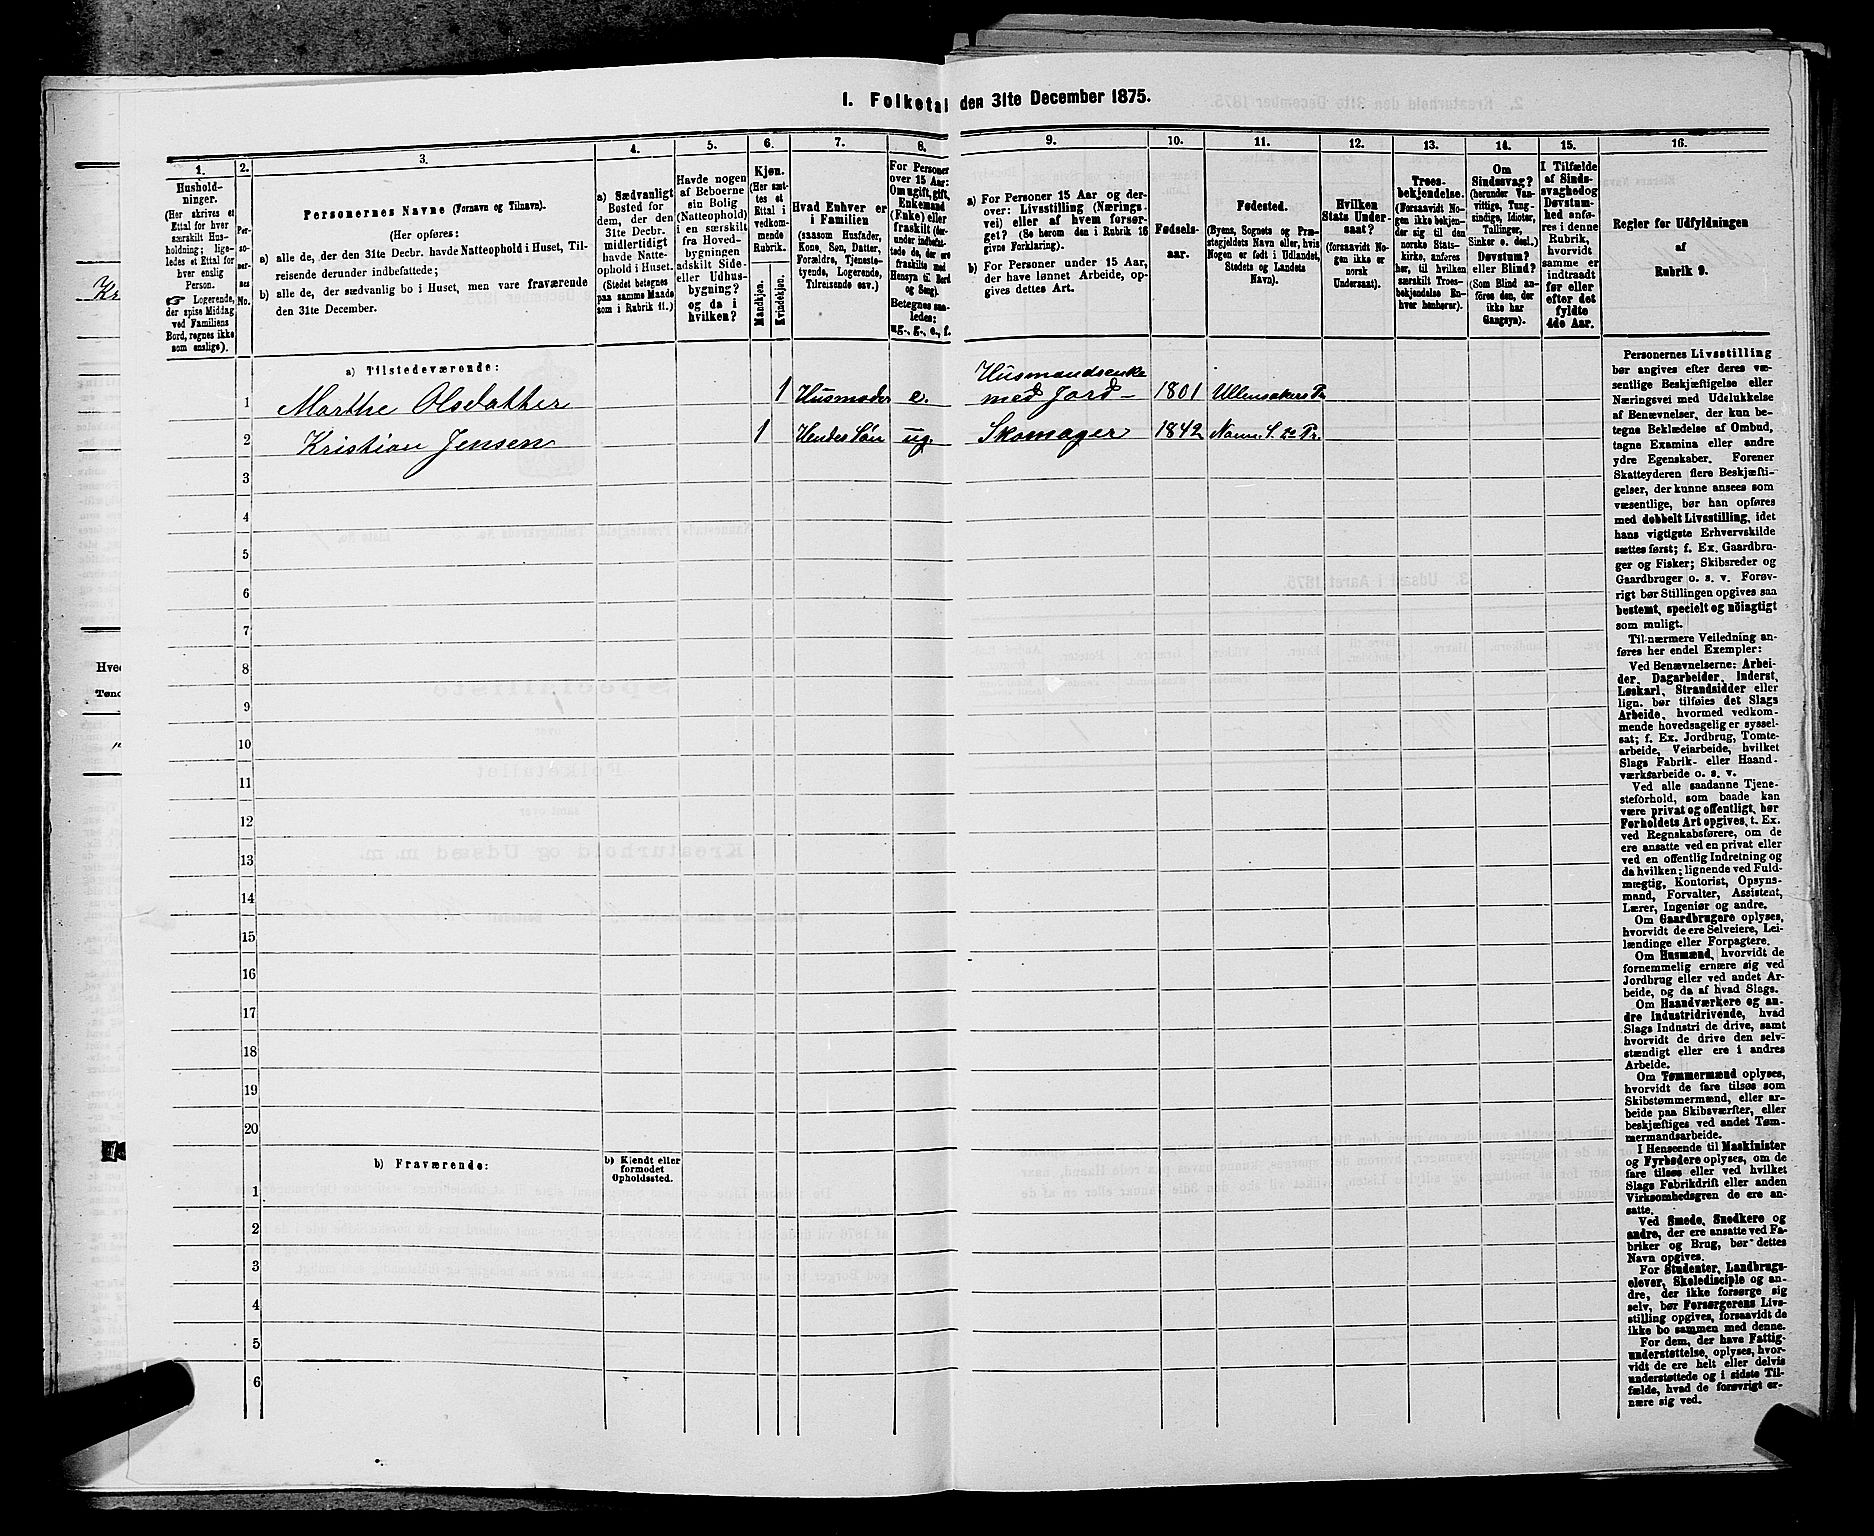 I. Folketal den 31te December 1875.
1.
Hushold-
ninger.
(Her skrives et
Ettal for hver
særskilt Hus-
holdning; lige-
ledes et Ettal for
hver enslig
Person.
☞ Logerende,
der spise Middag
ved Familiens
Bord, regnes ikke
som enslige).
2.
Per-
so-
ner-
nes
No.
3.
Personernes Navne (Fornavn og Tilnavn).
(Her opføres:
a) alle de, der den 31te Decbr. havde Natteophold i Huset, Til-
reisende derunder indbefattede;
b) alle de, der sædvanlig bo i Huset, men vare fraværende
den 31te December.
4.
a) Sædvanligt
Bosted for
dem, der den
31te Decbr.
midlertidigt
havde Natte-
ophold i Huset.
(Stedet betegnes
paa samme Maade
som i Rubrik 11.)
5.
Havde nogen
af Beboerne
sin Bolig
(Natteophold)
i en særskilt
fra Hoved-
bygningen
adskilt Side-
eller Udhus-
bygning?
og da i
hvilken?
6.
Kjøn.
(Her sæt-
tes et
Ettal i
vedkom-
mende
Rubrik.
Mandkjøn.
Kvindekjøn.
7.
Hvad Enhver er
i Familien
(saasom Husfader,
Kone, Søn, Datter,
Forældre, Tjeneste-
tyende, Logerende,
Tilreisende osv.)
8.
For Personer
over 15 Aar:
Om ugift, gift,
Enkemand
(Enke) eller
fraskilt (der-
under indbefat-
tede de, der ere
fraskilte med
Hensyn til Bord
og Seng).
Betegnes saa-
ledes:
ug., g., e., f.
9.
a) For Personer 15 Aar og der-
over: Livsstilling (Nærings-
vei) eller af hvem forsør-
get? (Se herom den i Rubrik 16
givne Forklaring).
b) For Personer under 15 Aar,
der have lønnet Arbeide, op-
gives dettes Art.
10.
Fødsels-
aar.
11.
Fødested.
(Byens, Sognets og Præ-
stegjeldets Navn eller, hvis
Nogen er født i Udlandet,
Stedets og Landets
Navn).
12.
Hvilken
Stats Under-
saat?
(forsaavidt No-
gen ikke er
norsk
Undersaat).
13.
Troes-
bekjendelse.
(Forsaavidt No-
gen ikke bekjen-
der sig til den
norske Stats-
kirke, anføres
her, til hvilken
særskilt Troes-
bekjendelse En-
hver henhører).
14.
Om
Sindssvag?
(herunder Van-
vittige, Tung-
sindige, Idioter,
Tullinger,
Sinker o. desl.).
Døvstum?
eller Blind?
(Som Blind an-
føres den, der
ikke har
Gangsyn).
15.
I Tilfælde
af Sinds-
svaghed og
Døvstum-
hed anfø-
res i denne
Rubrik,
hvorvidt
samme er
indtraadt
før eller
efter det
fyldte
4de Aar.
16.
Regler for Udfyldningen
af
Rubrik 9.
a) Tilstedeværende:
1 Marthe Olsdatter 1 Husmoder e. Husmandsenke
med Jord 1801 Ullensakers Pr.
2 Kristian Jensen 1 Hendes Søn ug. Skomager 1842
3
4
5
6
7
8
9
10
11
12
13
14
15
16
17
18
19
20
b) Fraværende:
b) Kjendt eller
formodet
Opholdssted.
1
2
3
4
5
6
Personernes Livsstilling
bør angives efter deres væ-
sentlige Beskjæftigelse eller
Næringsvei med Udelukkelse
af Benævnelser, der kun be-
tegne Beklædelse af Ombud,
tagne Examina eller andre
ydre Egenskaber. Forener
Skatteyderen flere Beskjæfti-
gelser, der kunne ansees som
væsentlige, bør han opføres
med dobbelt Livsstilling, idet
hans vigtigste Erhvervskilde
sættes først; f. Ex. Gaardbru-
ger og Fisker; Skibsreder og
Gaardbruger o. s. v. Forøv-
rigt bør Stillingen opgives saa
bestemt, specielt og nöiagtigt
som muligt.
Til nærmere Veiledning an-
føres her endel Exempler:
Ved Benævnelserne: Arbei-
der, Dagarbeider, Inderst,
Løskarl, Strandsidder eller
lign. bør tilføies det Slags
Arbeide, hvormed vedkom-
mende hovedsagelig er syssel-
sat; f. Ex. Jordbrug, Tomte-
arbeide, Veiarbeide, hvilket
Slags Fabrik- eller Haand-
værksarbeide o. s. v.
Ved alle saadanne Tjene-
steforhold, som baade kan
være privat og offentligt, bør
Forholdets Art opgives, t. Ex.
ved Regnskabsførere, om de
ere ansatte ved en privat eller
ved en offentlig Indretning og
da hvilken; lignende ved Fuld-
mægtig, Kontorist, Opsyns-
mand, Forvalter, Assistent,
Lærer, Ingeniør og andre.
Om Gaardbrugere oplyses,
hvorvidt de ere Selveiere, Lei-
lændinge eller Forpagtere.
Om Husmænd, hvorvidt de
fornemmelig ernære sig ved
Jordbrug eller ved andet Ar-
beide, og da af hvad Slags.
Om Haandværkere og an-
dre Industridrivende, hvad
Slags Industri de drive, samt
hvorvidt de drive den selv-
stændigt eller ere i andres
Arbeide.
Om Tømmermænd oplyses,
hvorvidt de fare tilsøs som
Skibstømmermænd, eller ar-
beide paa Skibsværfter, eller
beskjæftiges ved andet Tøm-
mermandsarbeide.
I Henseende til Maskinister
og Fyrbødere oplyses, om de
fare tilsøs eller ved hvilket
Slags Fabrikdrift eller anden
Virksomhedsgren de ere an-
satte.
Ved Smede, Snedkere og
andre, der ere ansatte ved Fa-
briker og Brug, bør dettes
Navn opgives.
For Studenter, Landbrugs-
elever, Skoledisciple og an-
dre, der ikke forsørge sig
selv, bør Forsørgerens Livs-
stilling opgives, forsaavidt de
ikke bo sammen med denne.
For dem, der have Fattig-
understøttelse, oplyses, hvor-
vidt de ere helt eller delvis
understøttede og i sidste Til-
fælde, hvad de forøvrigt er-
nære sig ved.